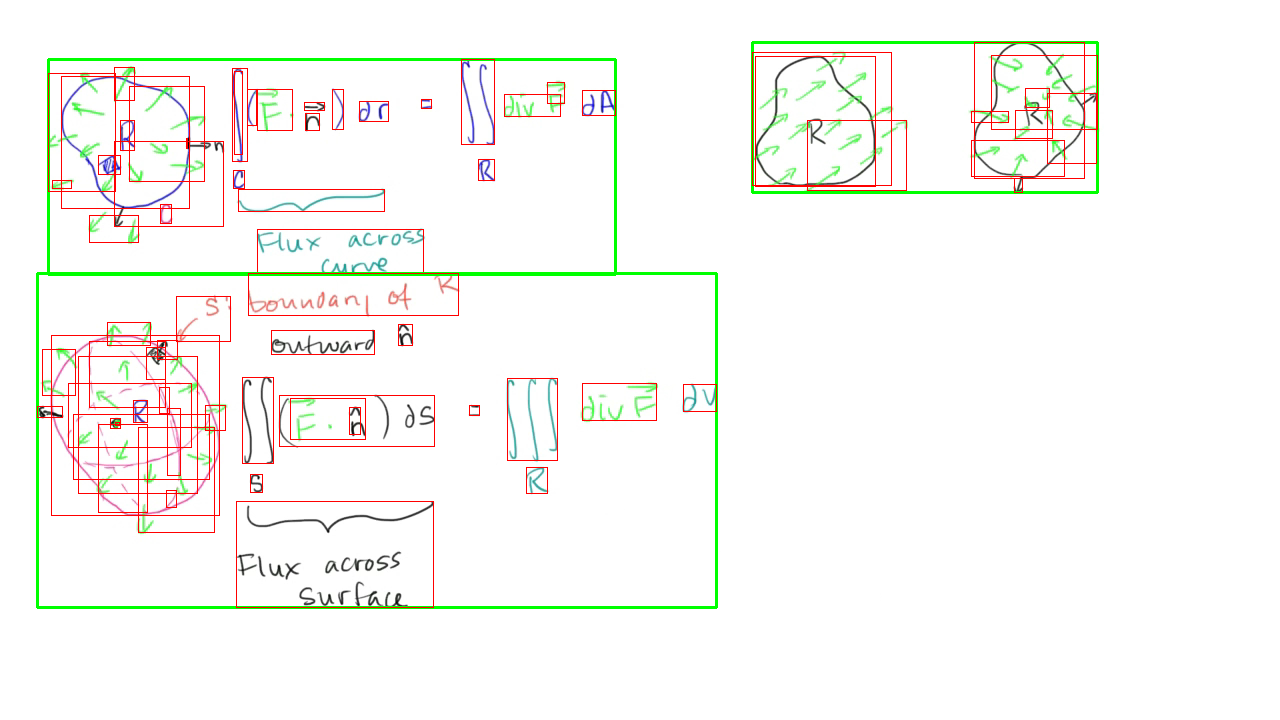 R
n
C
∫ ( F⃗ · n⃗ ) dr = ∬ div F⃗ dA
C R
Flux across
curve
R
R
S: boundary of R
outward n̂
R
∬ ( F⃗ · n̂ ) dS = ∭ div F⃗ dV
S R
Flux across
surface